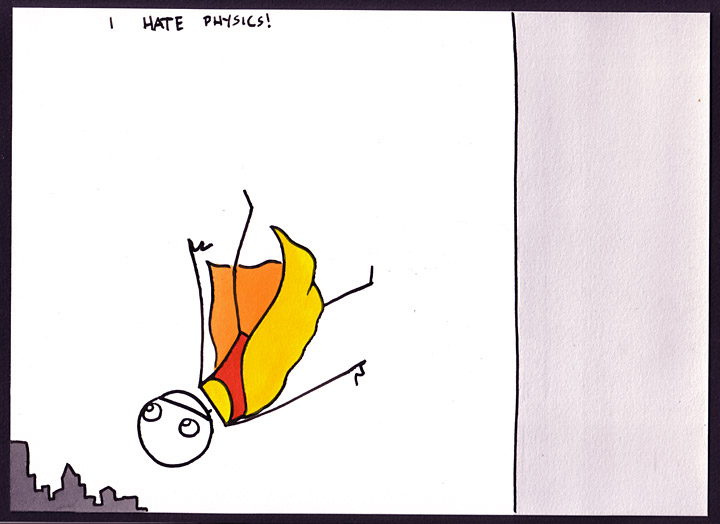 I HATE PHYSICS!